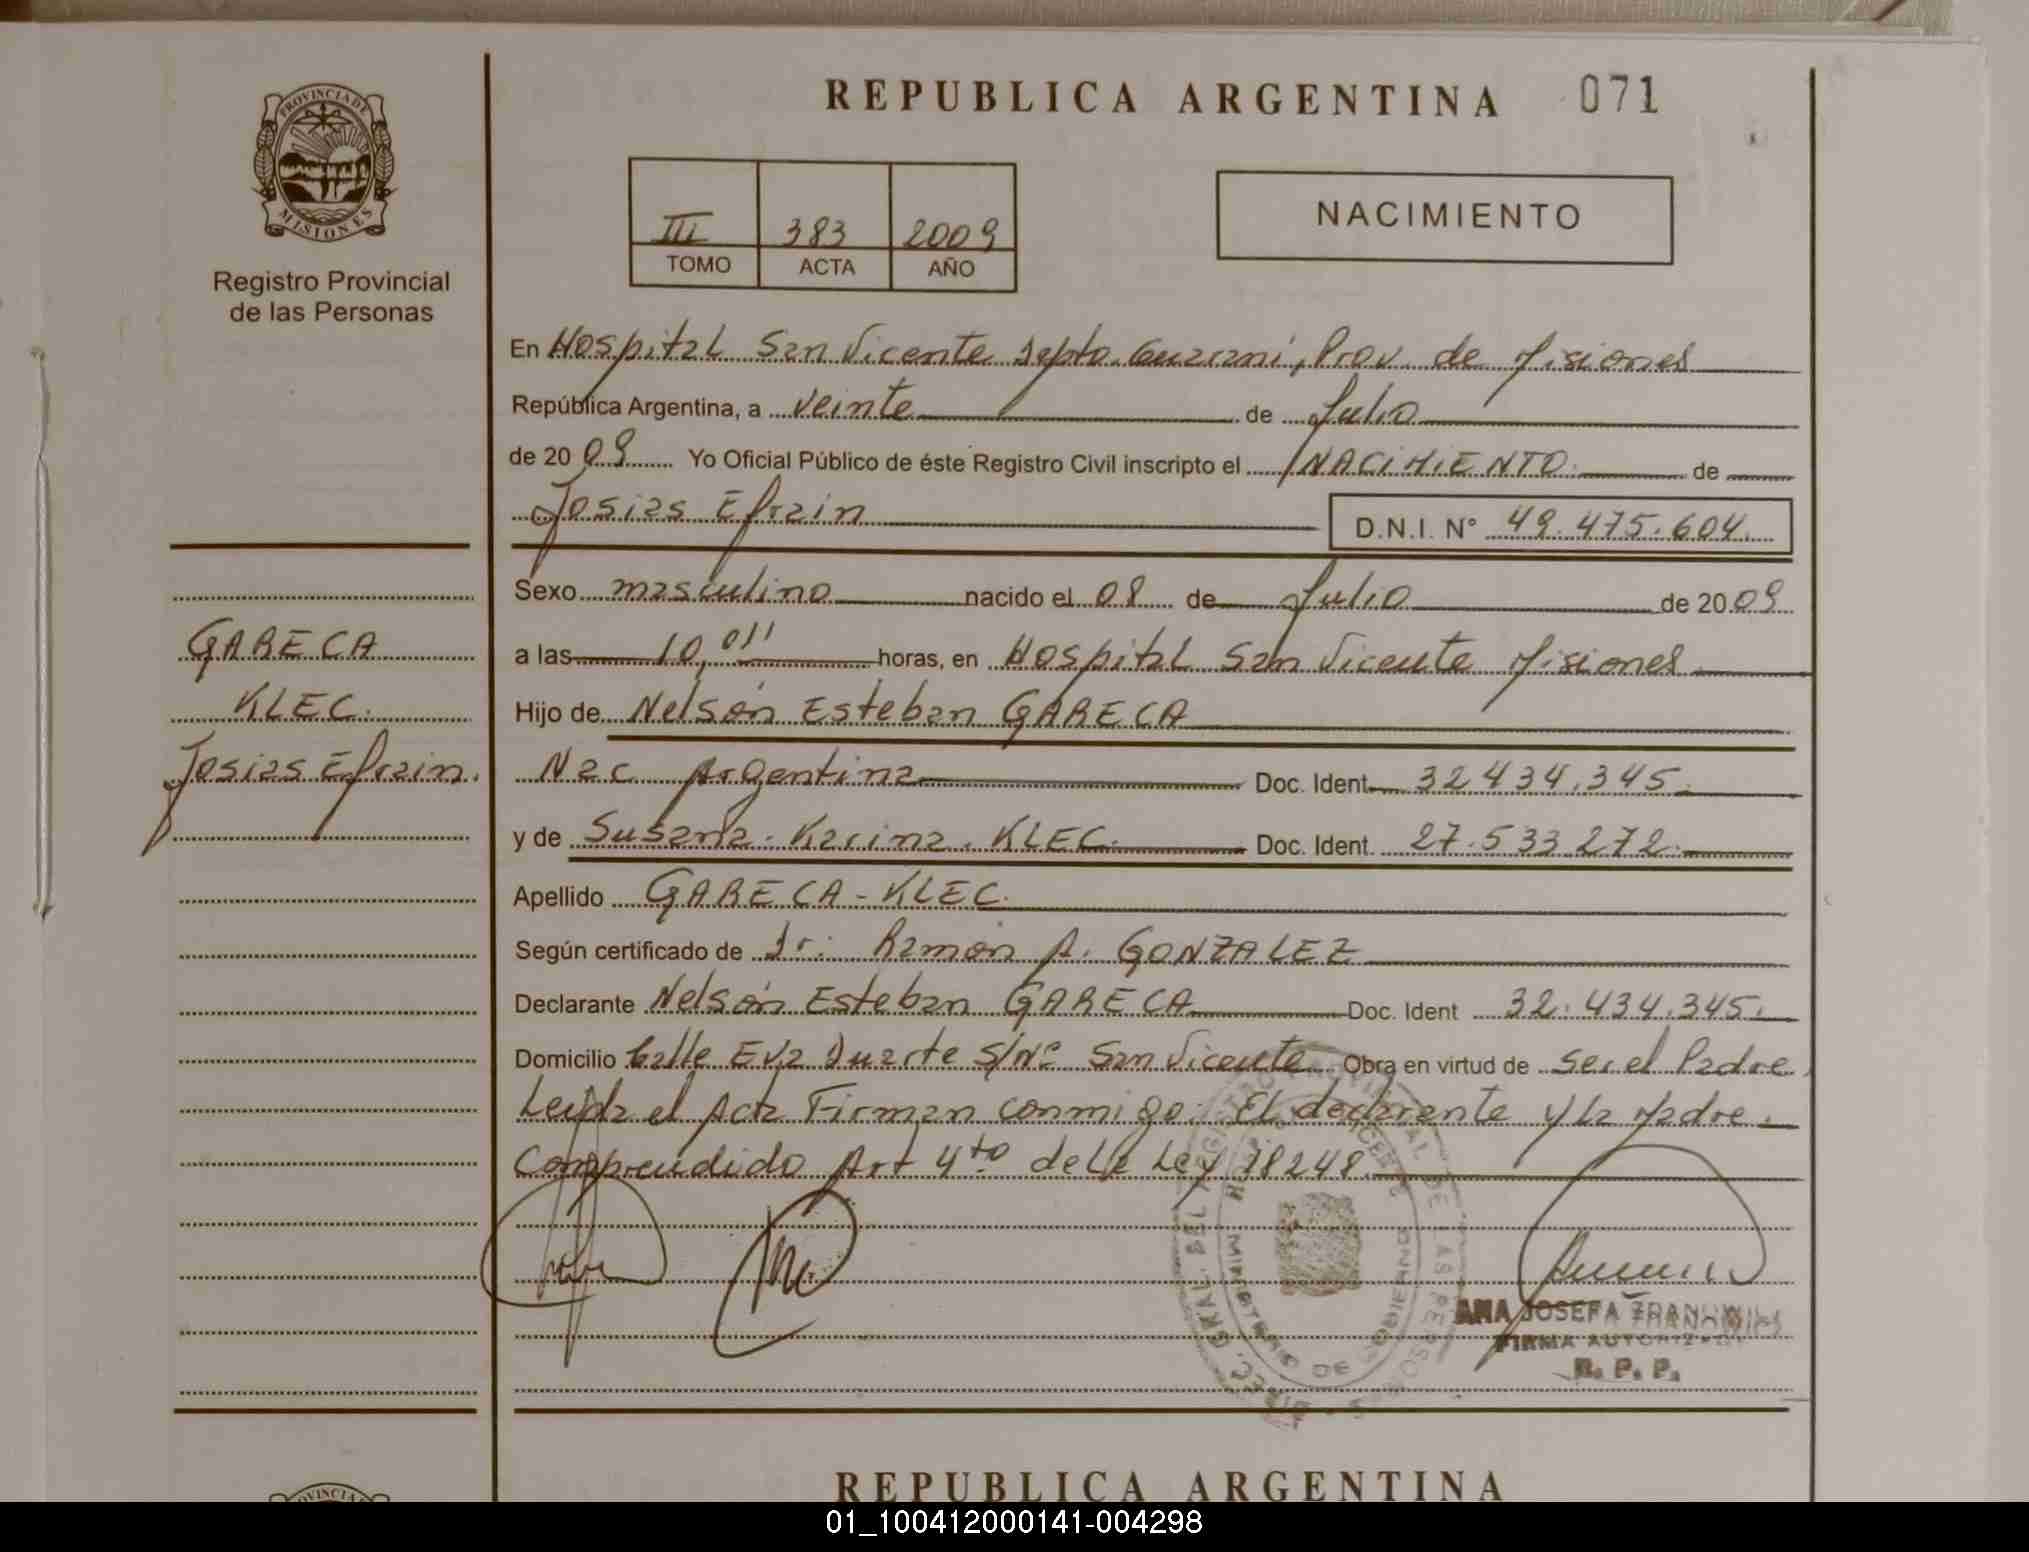 REPUBLICA ARGENTINA 071
PROVINCIA DE
MISIONES
Registro Provincial
de las Personas
III 383 2009
TOMO ACTA AÑO
NACIMIENTO
En Hospital San Vicente Depto. Guarani, Prov. de Misiones
República Argentina, a veinte de Julio
de 2009 Yo Oficial Público de éste Registro Civil inscripto el NACIMIENTO de
Josias Efrain D.N.I. N° 49.475.604.
Sexo masculino nacido el 08 de Julio de 2009
a las 10, horas, en Hospital San Vicente Misiones
Hijo de Nelsón Esteban GARECA
Nac Argentina Doc. Ident. 32434.345.
y de Susana. Karina. KLEC. Doc. Ident. 27.533.272.
Apellido GARECA-KLEC.
Según certificado de Dr. Ramón A. GONZALEZ
Declarante Nelsón Esteban GARECA Doc. Ident 32.434.345.
Domicilio Calle Eva Duarte S/N° San Vicente Obra en virtud de ser el Padre.
Leida el Acta Firman conmigo: El declarante y la Madre.
Comprendido Art 4to de la Ley 18248.
GARECA
KLEC.
Josias Efrain.
DIREC. GRAL. DEL REGISTRO PROVINCIAL DE LAS PERSONAS
MINISTERIO DE GOBIERNO
ANA JOSEFA
FIRMA AUTORIZADA
R. P. P.
REPUBLICA ARGENTINA
01_100412000141-004298